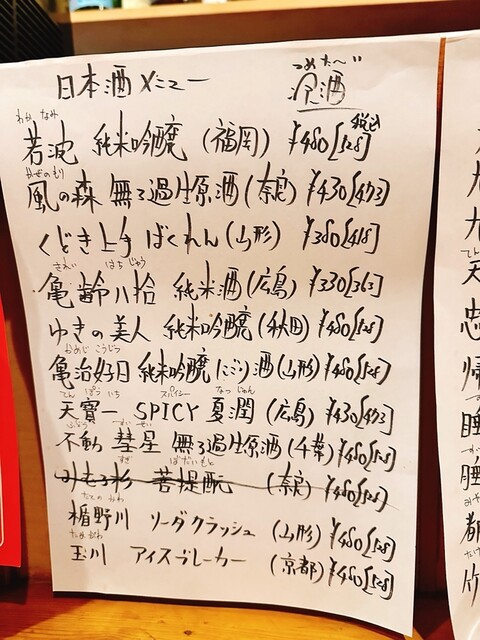 日本酒メニュー
つめた〜”
冷酒
わかなみ
若波 純米吟醸 (福岡) ¥480[528]税込
かぜのもり
風の森 無ろ過生原酒 (奈良) ¥430[473]
くどき上手 ばくれん (山形) ¥380[418]
きれい はちじゅう
亀齢八拾 純米酒 (広島) ¥330[363]
ゆきの美人 純米吟醸 (秋田) ¥480[528]
かめじ こうじつ
亀治好日 純米吟醸 にごり酒 (山形) ¥480[528]
てんぽういち スパイシー なつじゅん
天寶一 SPICY 夏潤 (広島) ¥430[473]
ふどう すいせい
不動 彗星 無ろ過生原酒 (千葉) ¥480[528]
すぎ ぼだいもと
みむろ杉 菩提酛 (奈良) ¥480[528]
たてのかわ
楯野川 ソーダクラッシュ (山形) ¥480[528]
たまがわ
玉川 アイスブレーカー (京都) ¥480[528]
九
九
天
忠
帰
睡
睡
都
竹